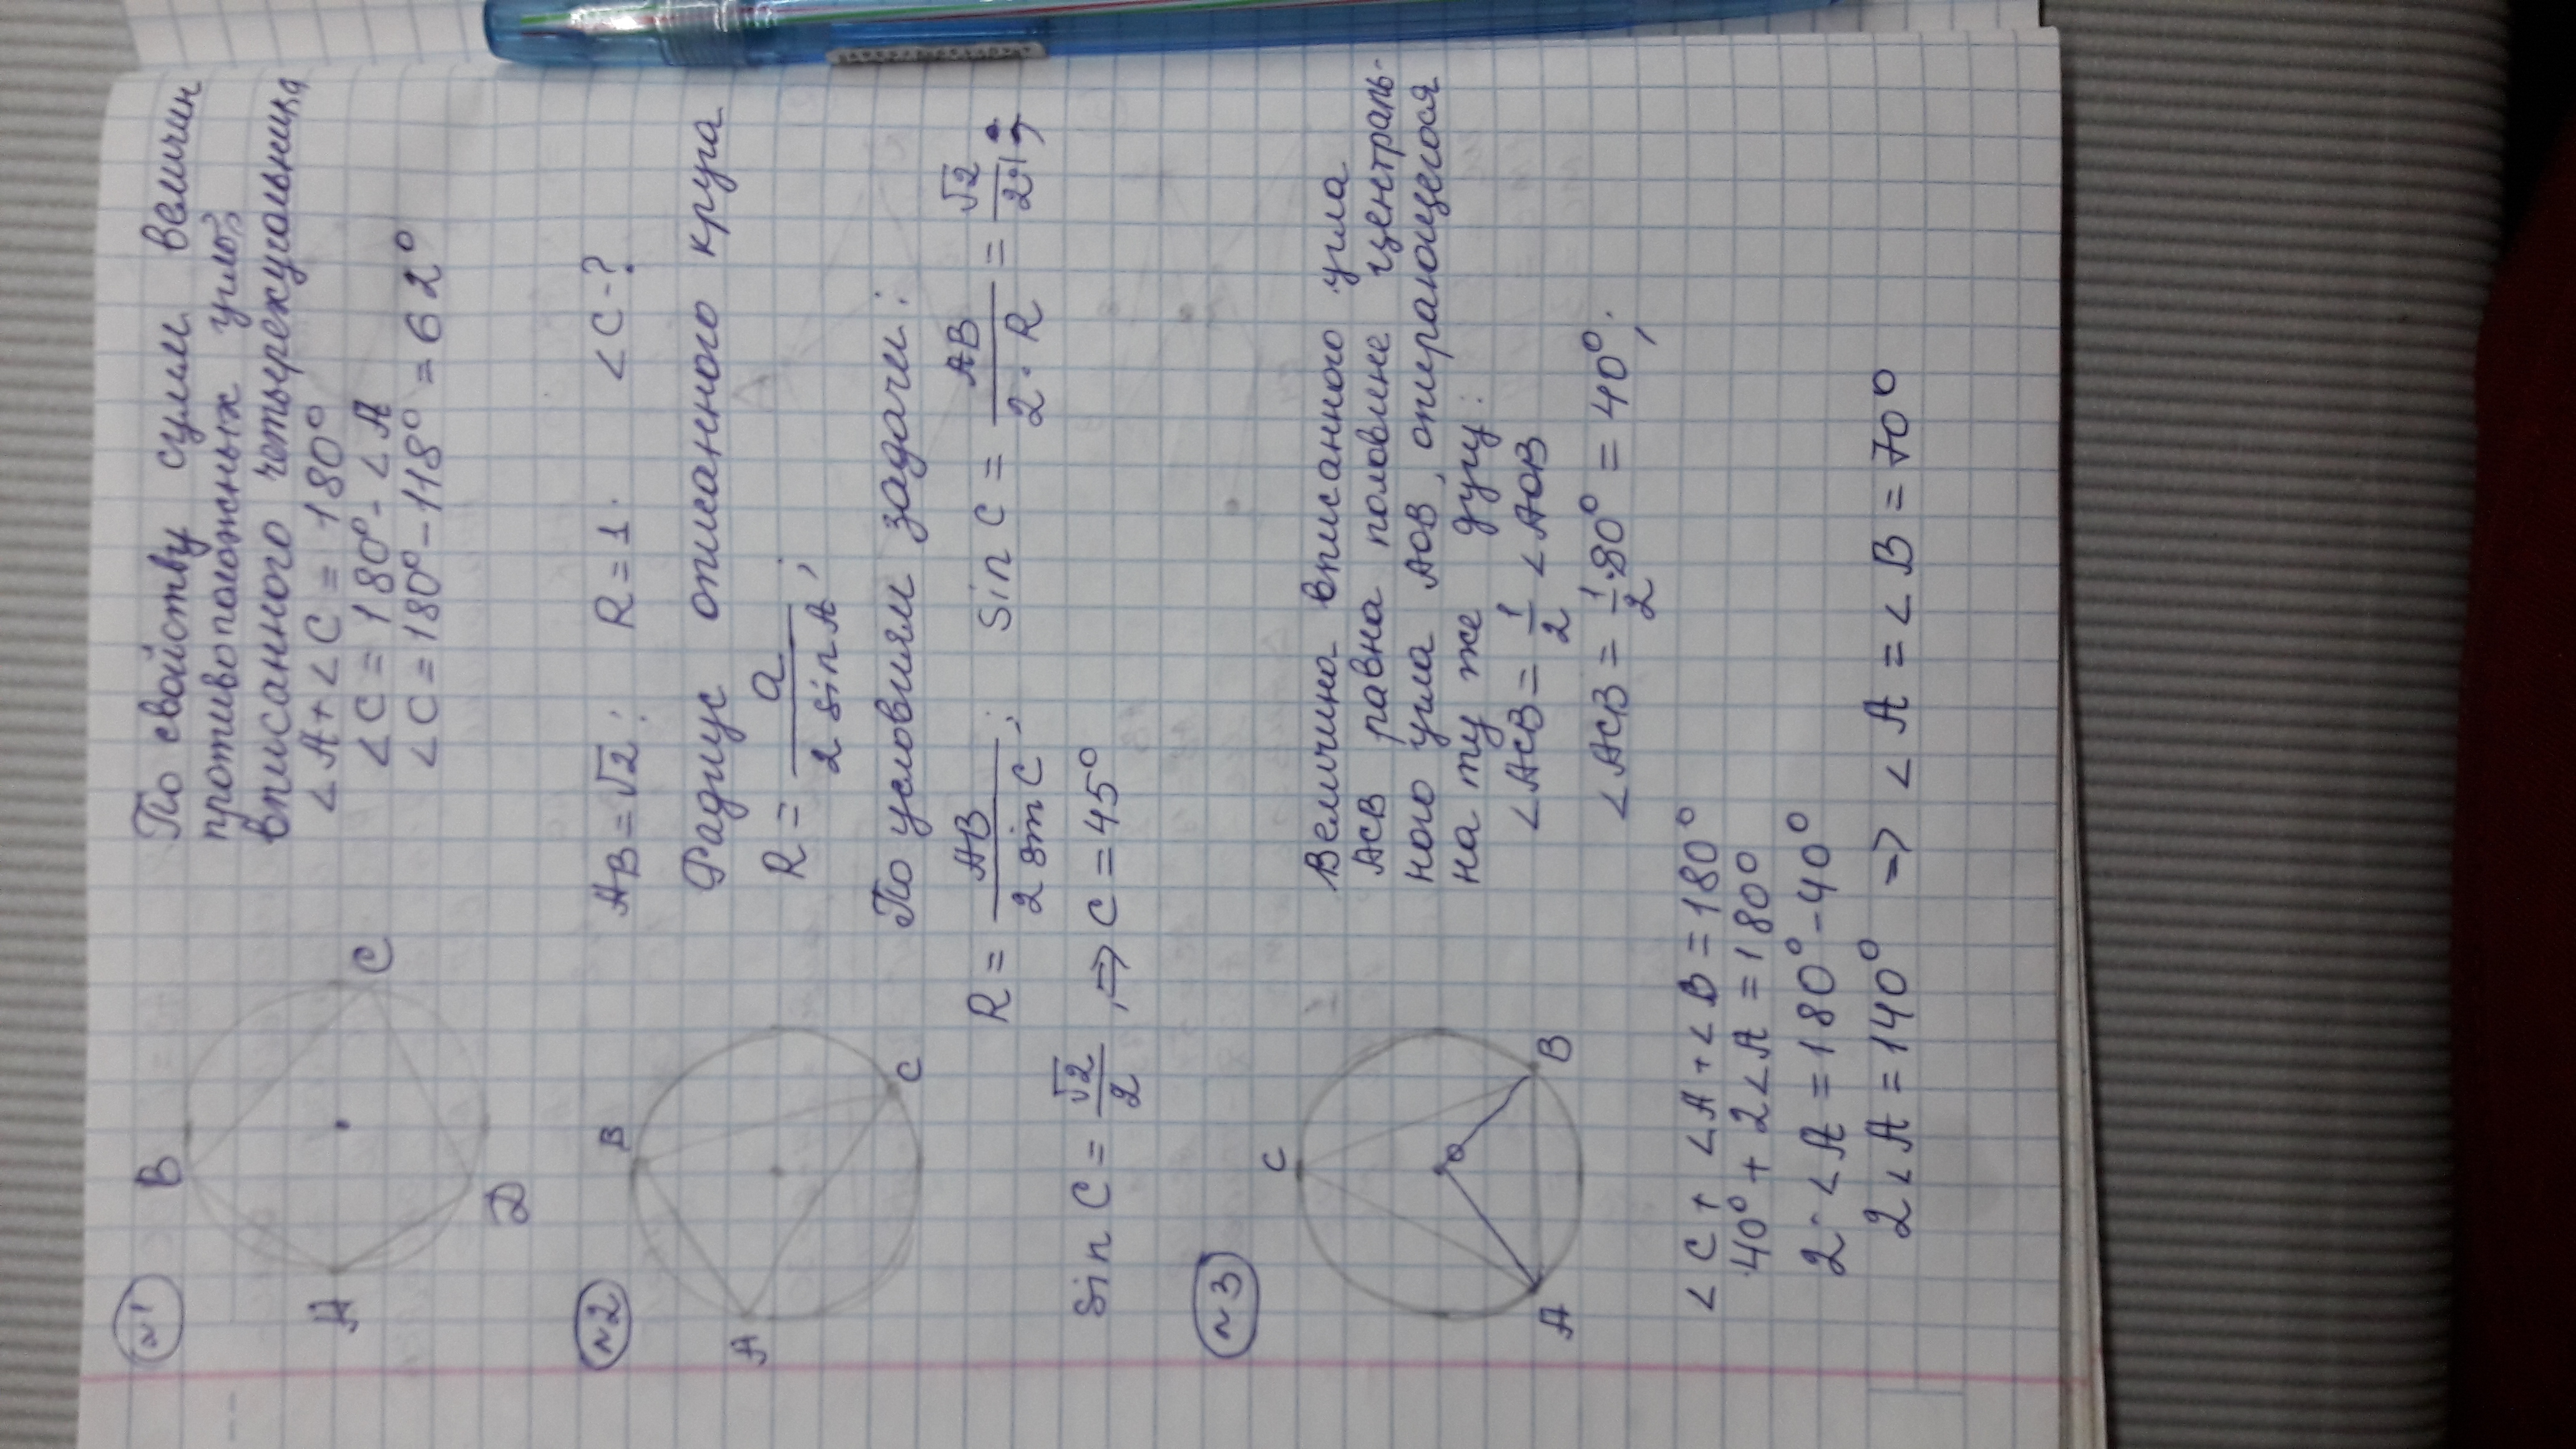 N1
По свойству сумм величин
противоположных углов
вписанного четырехугольника
∠A+∠C=180°
∠C=180°-∠A
∠C=180°-118°=62°
B
C
A
D
N2
AB=√2; R=1. ∠C-?
Радиус описанного круга
R = a / 2 sin A ;
По условиям задачи:
R = AB / 2 sin C ; sin C = AB / 2·R = √2 / 2·1 ;
sin C = √2 / 2 , => C = 45°
B
A
C
N3
Величина вписанного угла
ACB равна половине централь-
ного угла AOB, опирающегося
на ту же дугу:
∠ACB = 1/2 ∠AOB
∠ACB = 1/2 · 80° = 40°;
C
O
A
B
∠C+∠A+∠B=180°
40°+2∠A=180°
2·∠A=180°-40°
2∠A=140° => ∠A=∠B=70°